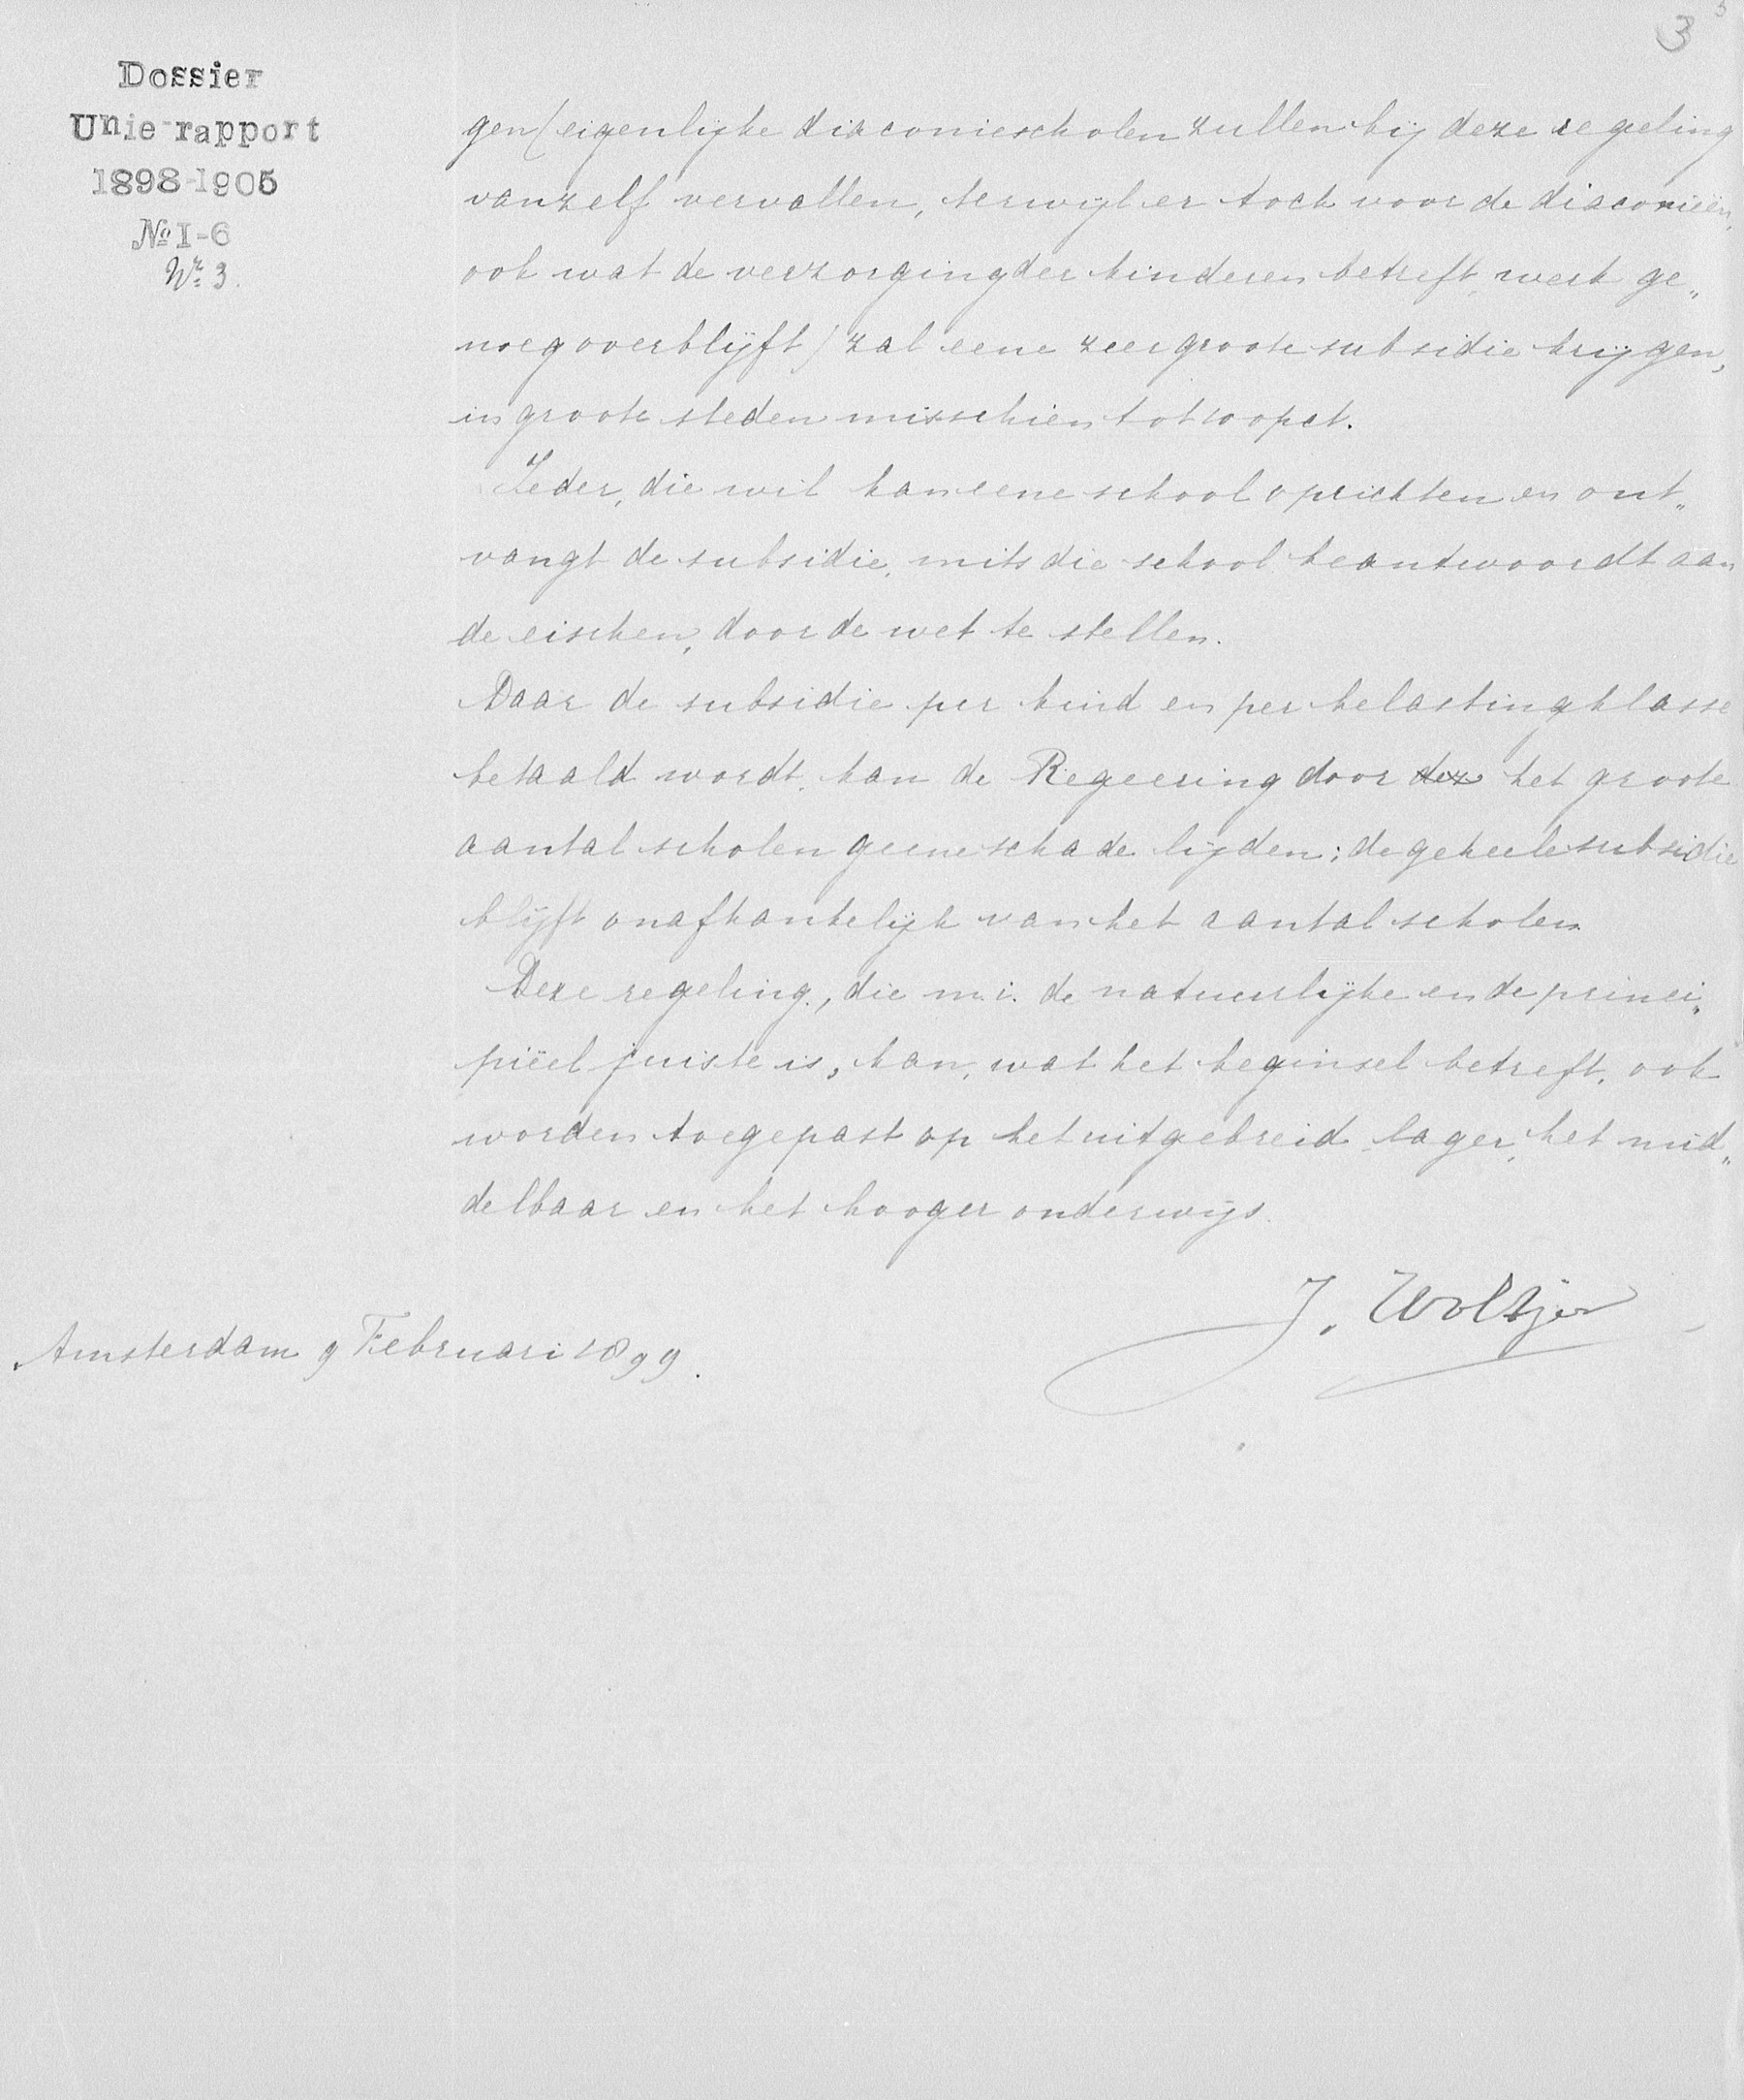 3
Dossier
Unie-rapport
1898-1905
No I-6
Nr. 3.
gen (eigenlijke diaconiescholen zullen bij deze regeling
vanzelf vervallen, terwijl er toch voor de diaconieën,
ook wat de verzorging der kinderen betreft, werk ge„
noeg overblijft) zal eene zeer groote subsidie krijgen,
in groote steden misschien tot 100 pct.
Ieder, die wil kan eene school oprichten en ont„
vangt de subsidie, mits die school beantwoordt aan
de eischen, door de wet te stellen.
Daar de subsidie per kind en per belastingklasse
betaald wordt, kan de Regeering door het groote
aantal scholen geene schade lijden; de geheele subsidie
blijft onafhankelijk van het aantal scholen.
Deze regeling, die m.i. de natuurlijke en de princi„
piëel juiste is, kan, wat het beginsel betreft, ook
worden toegepast op het uitgebreid lager, het mid„
delbaar en het hooger onderwijs.
J. Woltjer
Amsterdam 9 Februari 1899.